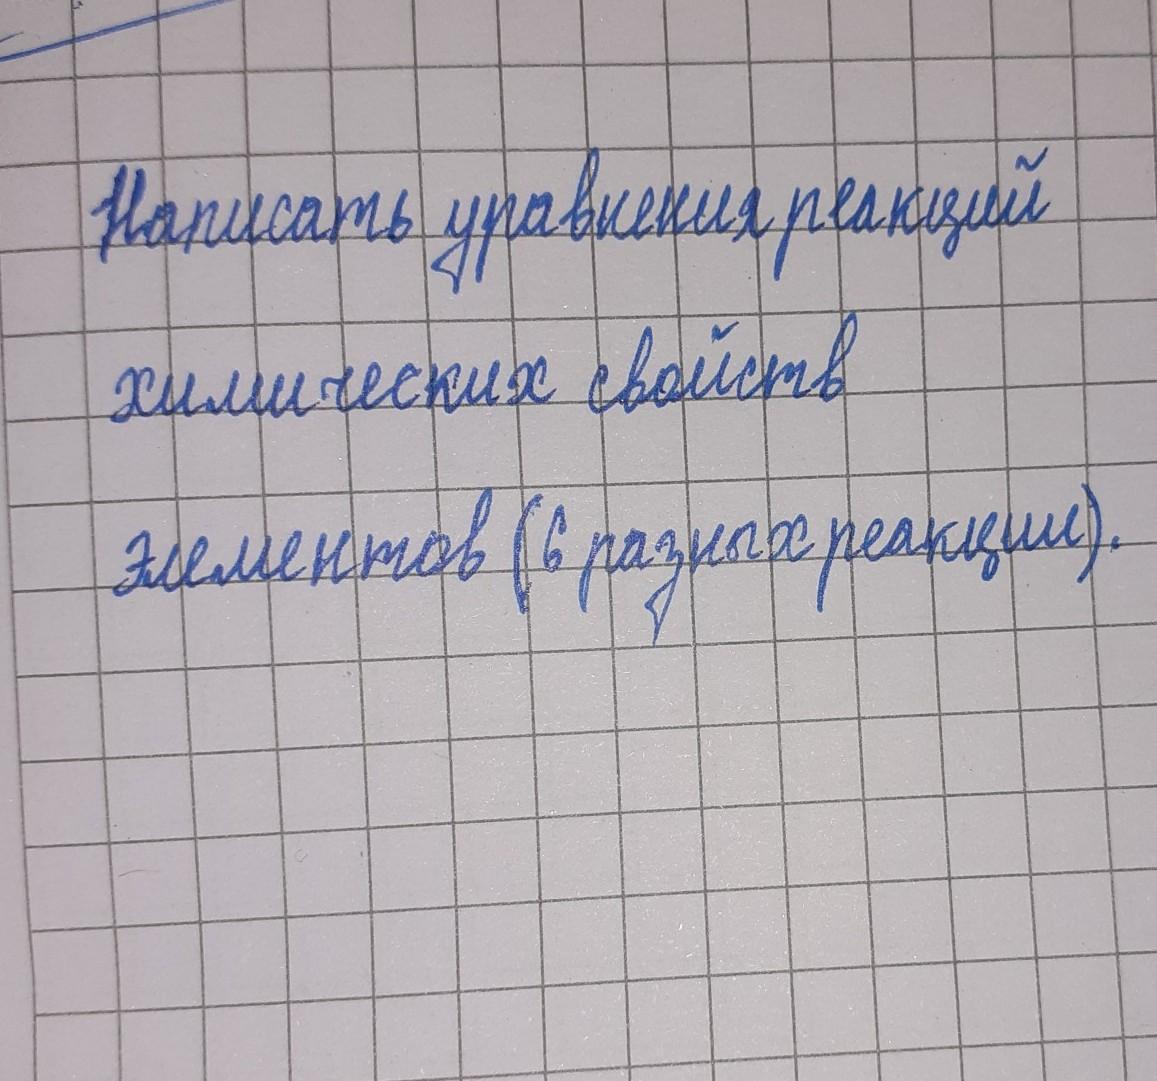 Написать уравнения реакций
химических свойств
элементов (6 разных реакции).